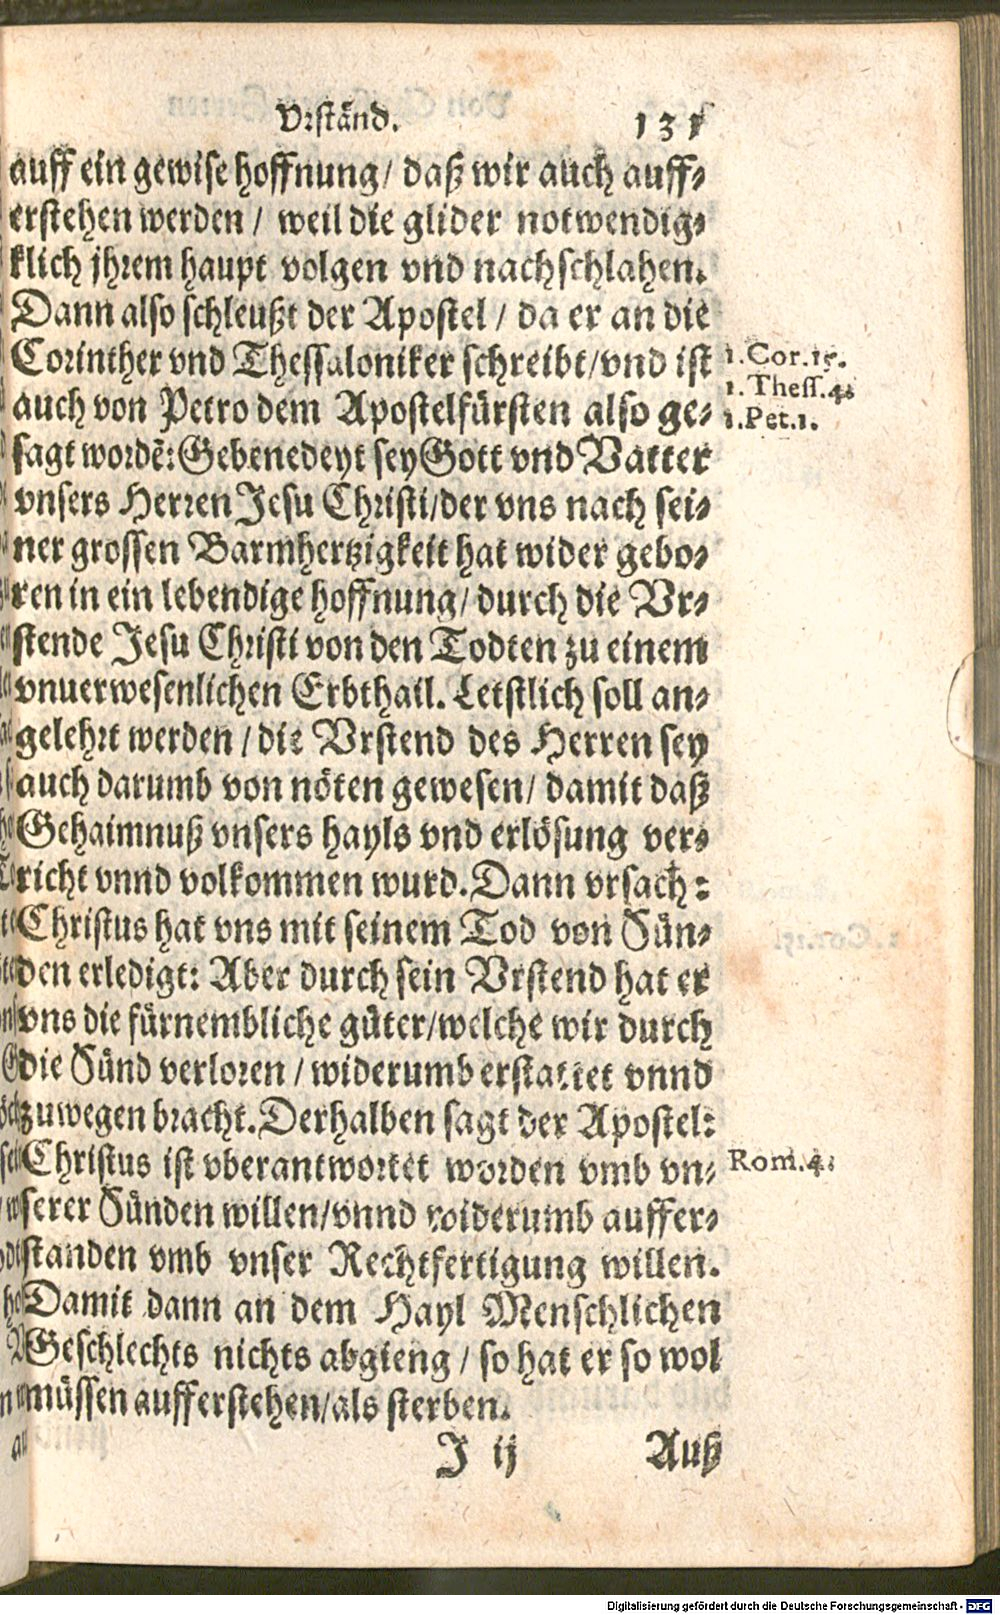 Vrständ. 131
auff ein gewise hoffnung/ daß wir auch auff-
erstehen werden / weil die glider notwendig-
klich jhrem haupt volgen vnd nachschlahen.
Dann also schleußt der Apostel / da er an die
Corinther vnd Thessaloniker schreibt/vnd ist
1.Cor.15.
auch von Petro dem Apostelfürsten also ge-
1.Thess.4.
1.Pet.1.
sagt wordẽ: Gebenedeyt sey Gott vnd Vatter
vnsers Herren Jesu Christi/der vns nach sei-
ner grossen Barmhertzigkeit hat wider gebo-
ren in ein lebendige hoffnung/ durch die Vr-
stende Jesu Christi von den Todten zu einem
vnuerwesenlichen Erbthail. Letstlich soll an-
gelehrt werden / die Vrstend des Herren sey
auch darumb von nöten gewesen/ damit daß
Gehaimnuß vnsers hayls vnd erlösung ver-
richt vnnd volkommen wurd. Dann vrsach:
Christus hat vns mit seinem Tod von Sün-
den erledigt: Aber durch sein Vrstend hat er
vns die fürnembliche güter/welche wir durch
die Sünd verloren / widerumb erstattet vnnd
zuwegen bracht. Derhalben sagt der Apostel:
Christus ist vberantwortet worden vmb vn-
Rom.4.
serer Sünden willen/vnnd widerumb auffer-
standen vmb vnser Rechtfertigung willen.
Damit dann an dem Hayl Menschlichen
Geschlechts nichts abgieng / so hat er so wol
müssen aufferstehen/als sterben.
J ij Auß
Digitalisierung gefördert durch die Deutsche Forschungsgemeinschaft - DFG